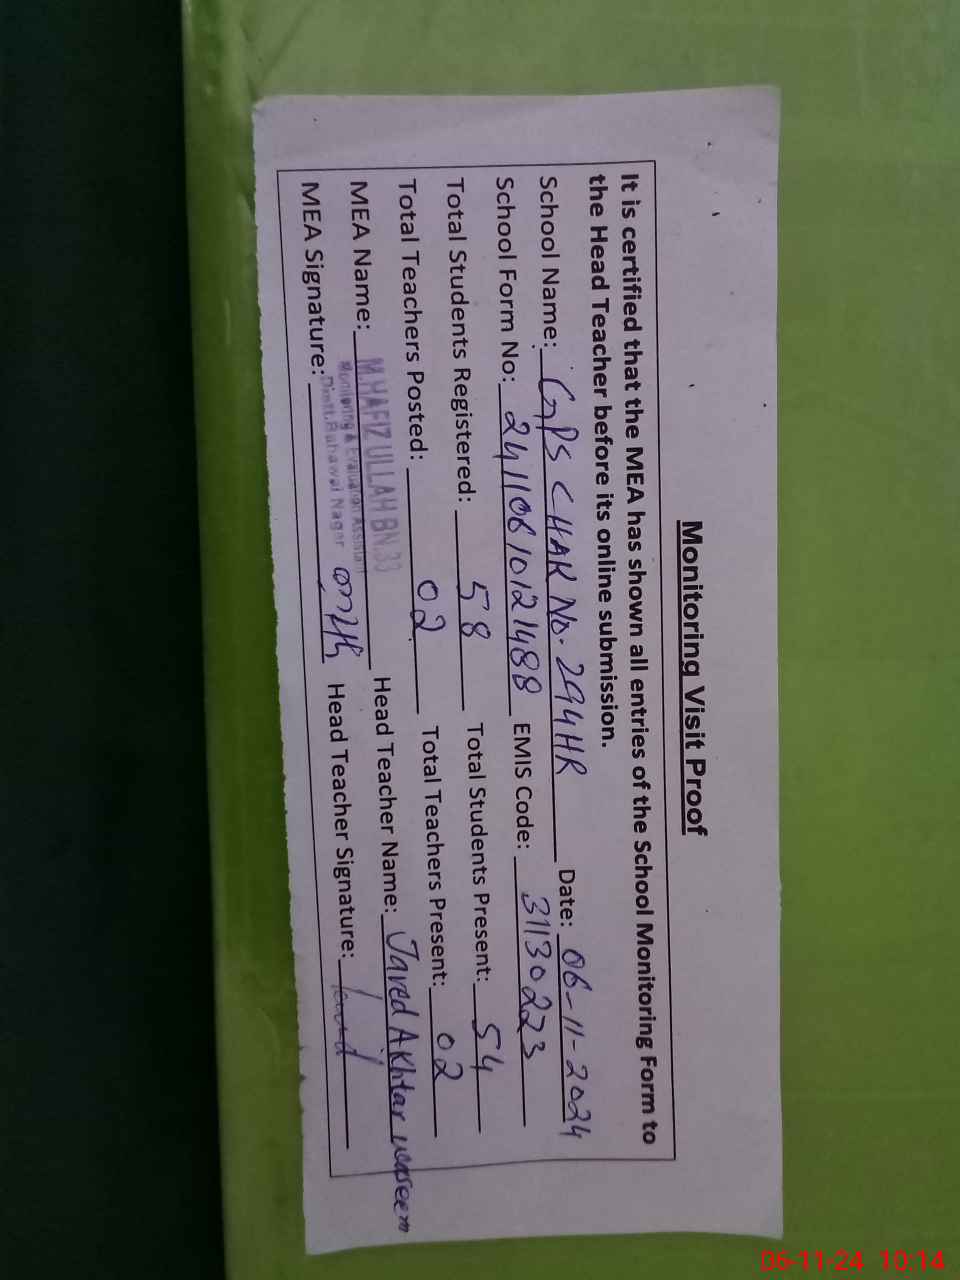 Monitoring Visit Proof
It is certified that the MEA has shown all entries of the School Monitoring Form to
the Head Teacher before its online submission.
School Name: GPS CHAK No. 294HR Date: 06-11-2024
School Form No: 24110610121488 EMIS Code: 31130223
Total Students Registered: 58 Total Students Present: 54
Total Teachers Posted: 02 Total Teachers Present: 02
MEA Name: M.HAFIZ ULLAH BN.33 Head Teacher Name: Javed Akhtar waseem
Monitoring & Evaluation Assistant
Distt. Bahawal Nagar
MEA Signature: Head Teacher Signature:
06-11-24 10:14